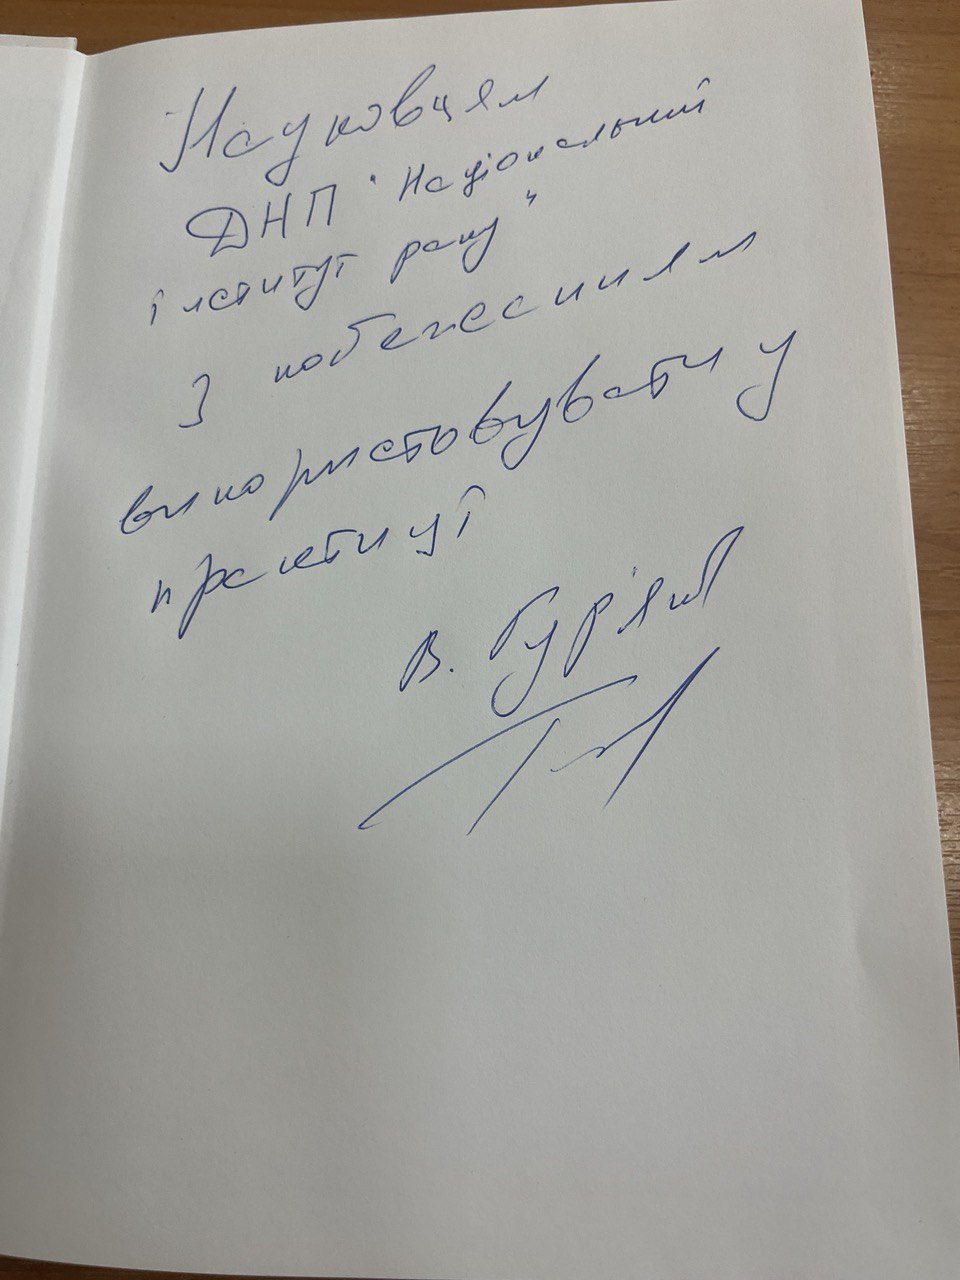 Науковцям
ДНП "Національний
інститут раку"
З побажанням
використовувати у
практиці
В. Гур'янов